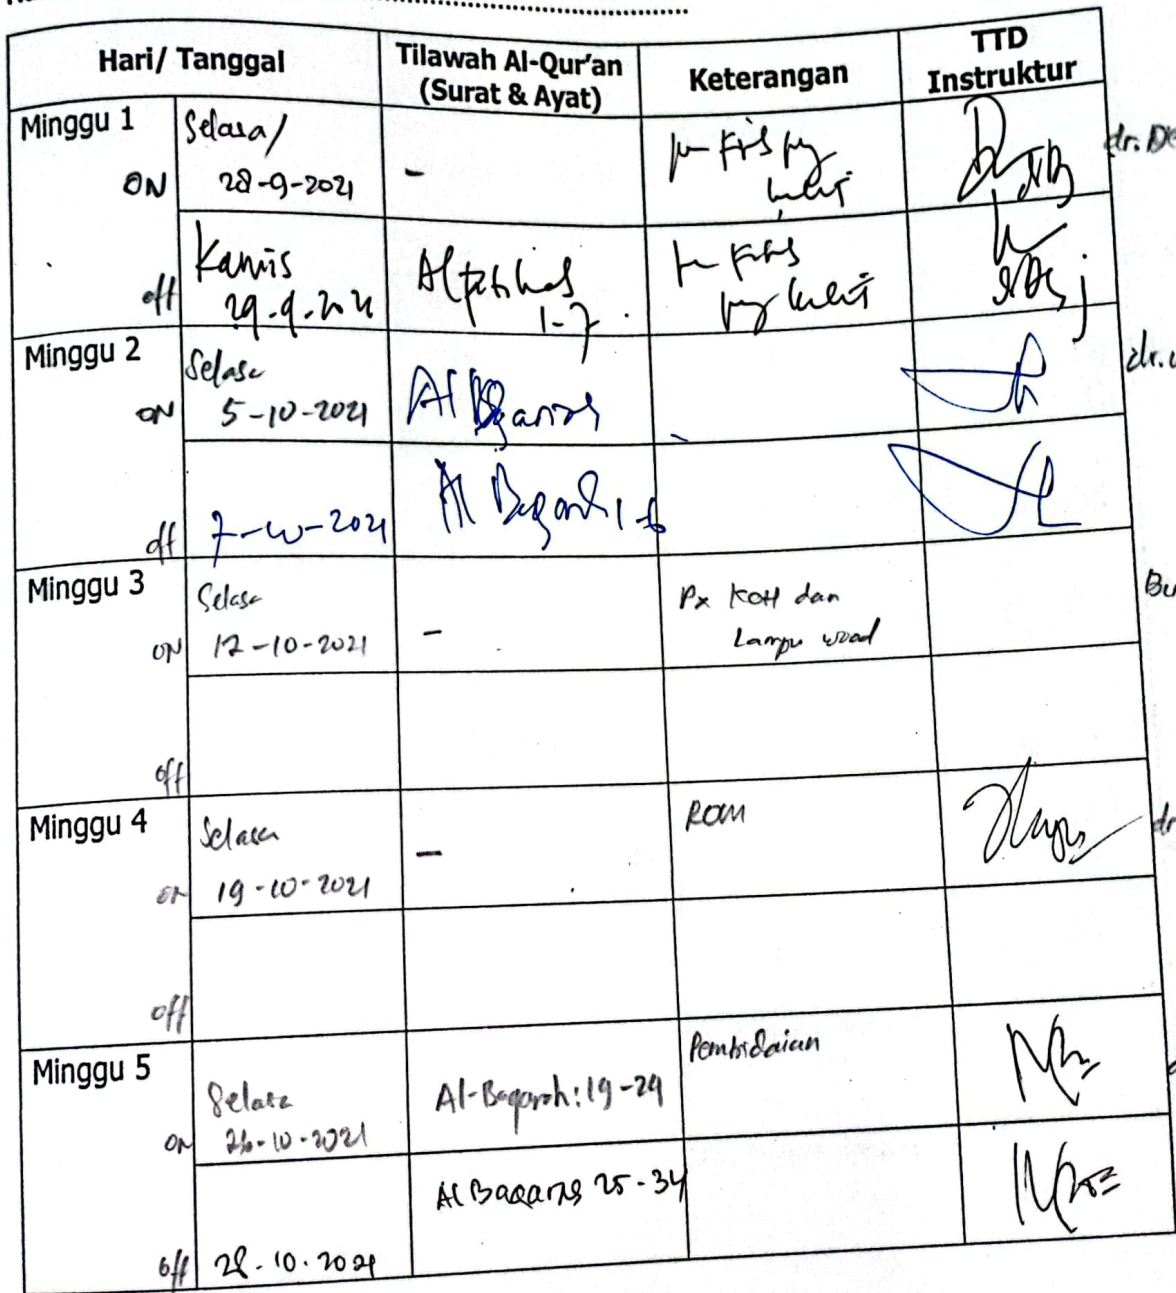 Hari/ Tanggal
Tilawah Al-Qur'an
(Surat & Ayat)
Keterangan
TTD
Instruktur
Minggu 1
ON
Selasa/
28-9-2021
-
kulit
dr. De
off
Kamis
29.9.2021
1-7
kulit
Minggu 2
ON
Selasa
5-10-2021
Al Baqarah
dr.
off
7-10-2021
Al Baqarah 1-6
Minggu 3
ON
Selasa
12-10-2021
-
Px KOH dan
Lampu wood
Bu
off
Minggu 4
on
Selasa
19-10-2021
-
ROM
dr
off
Minggu 5
on
Selasa
26-10-2021
Al-Baqarah: 19-24
Pembidaian
off
28.10.2021
Al Baqarah 25-34